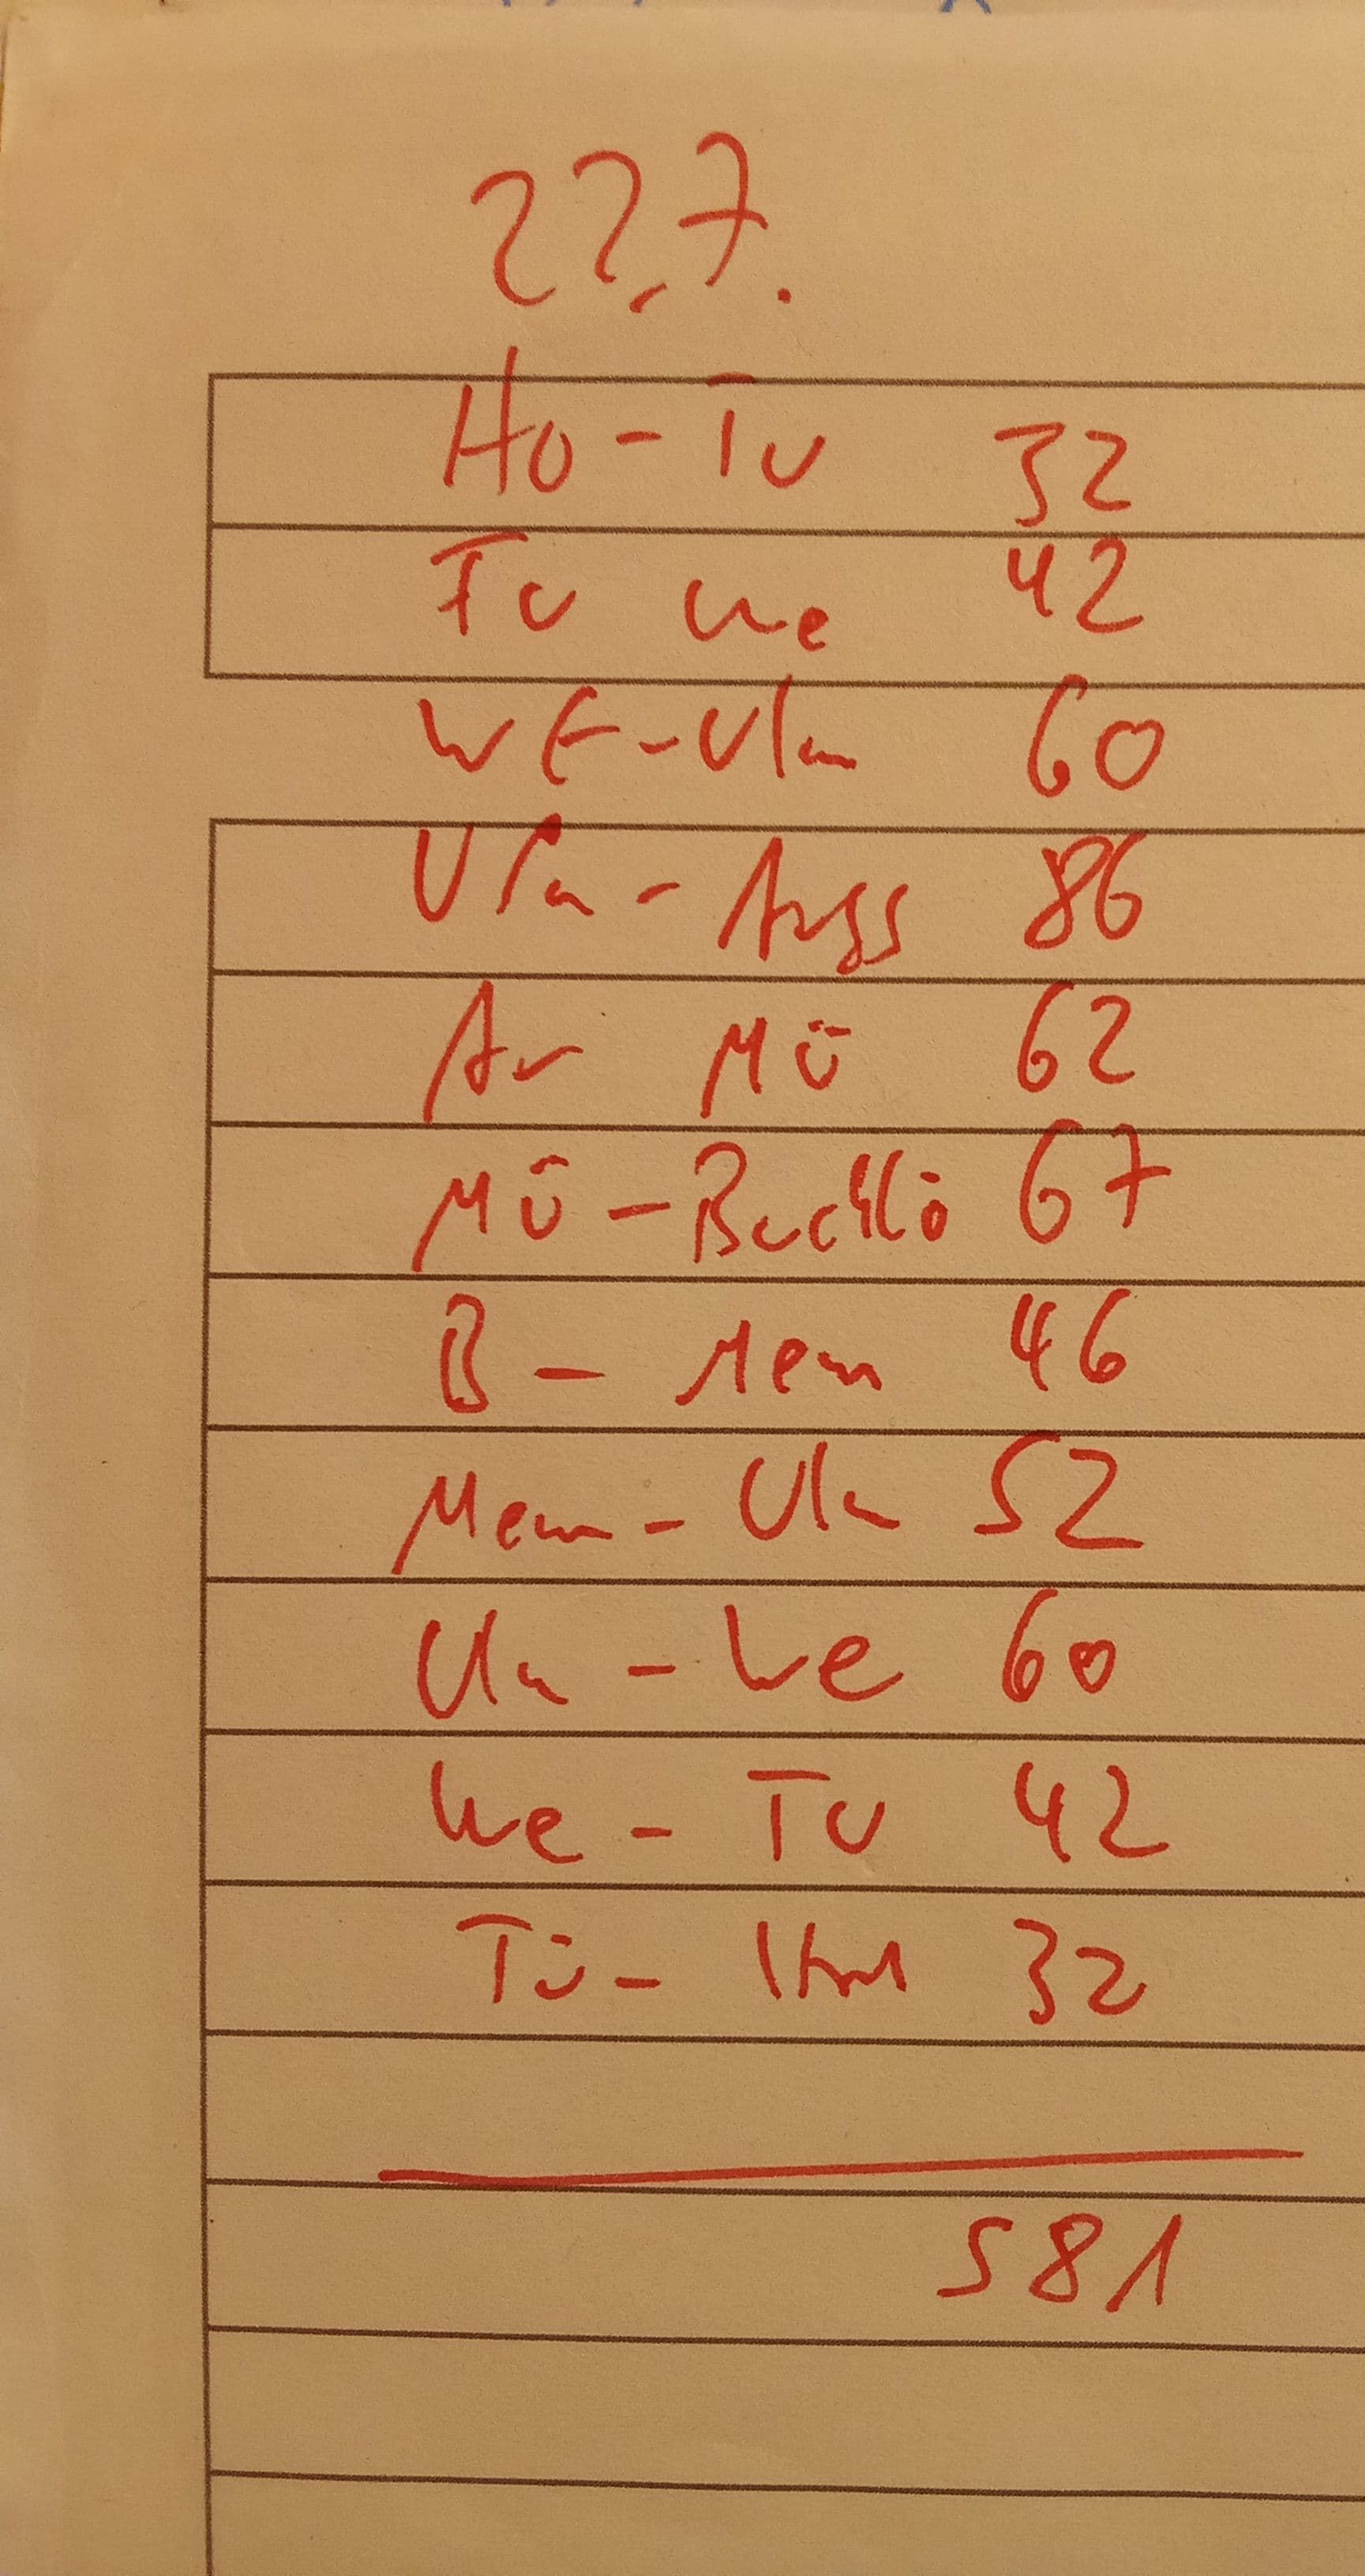 22.7.
Ho - Tu 32
Tu We 42
WE - Ulm 60
Ulm - Augs 86
Au Mü 62
Mü - Buchlö 67
B - Mem 46
Mem - Ulm 52
Ulm - We 60
We - Tu 42
Tü - 32
581